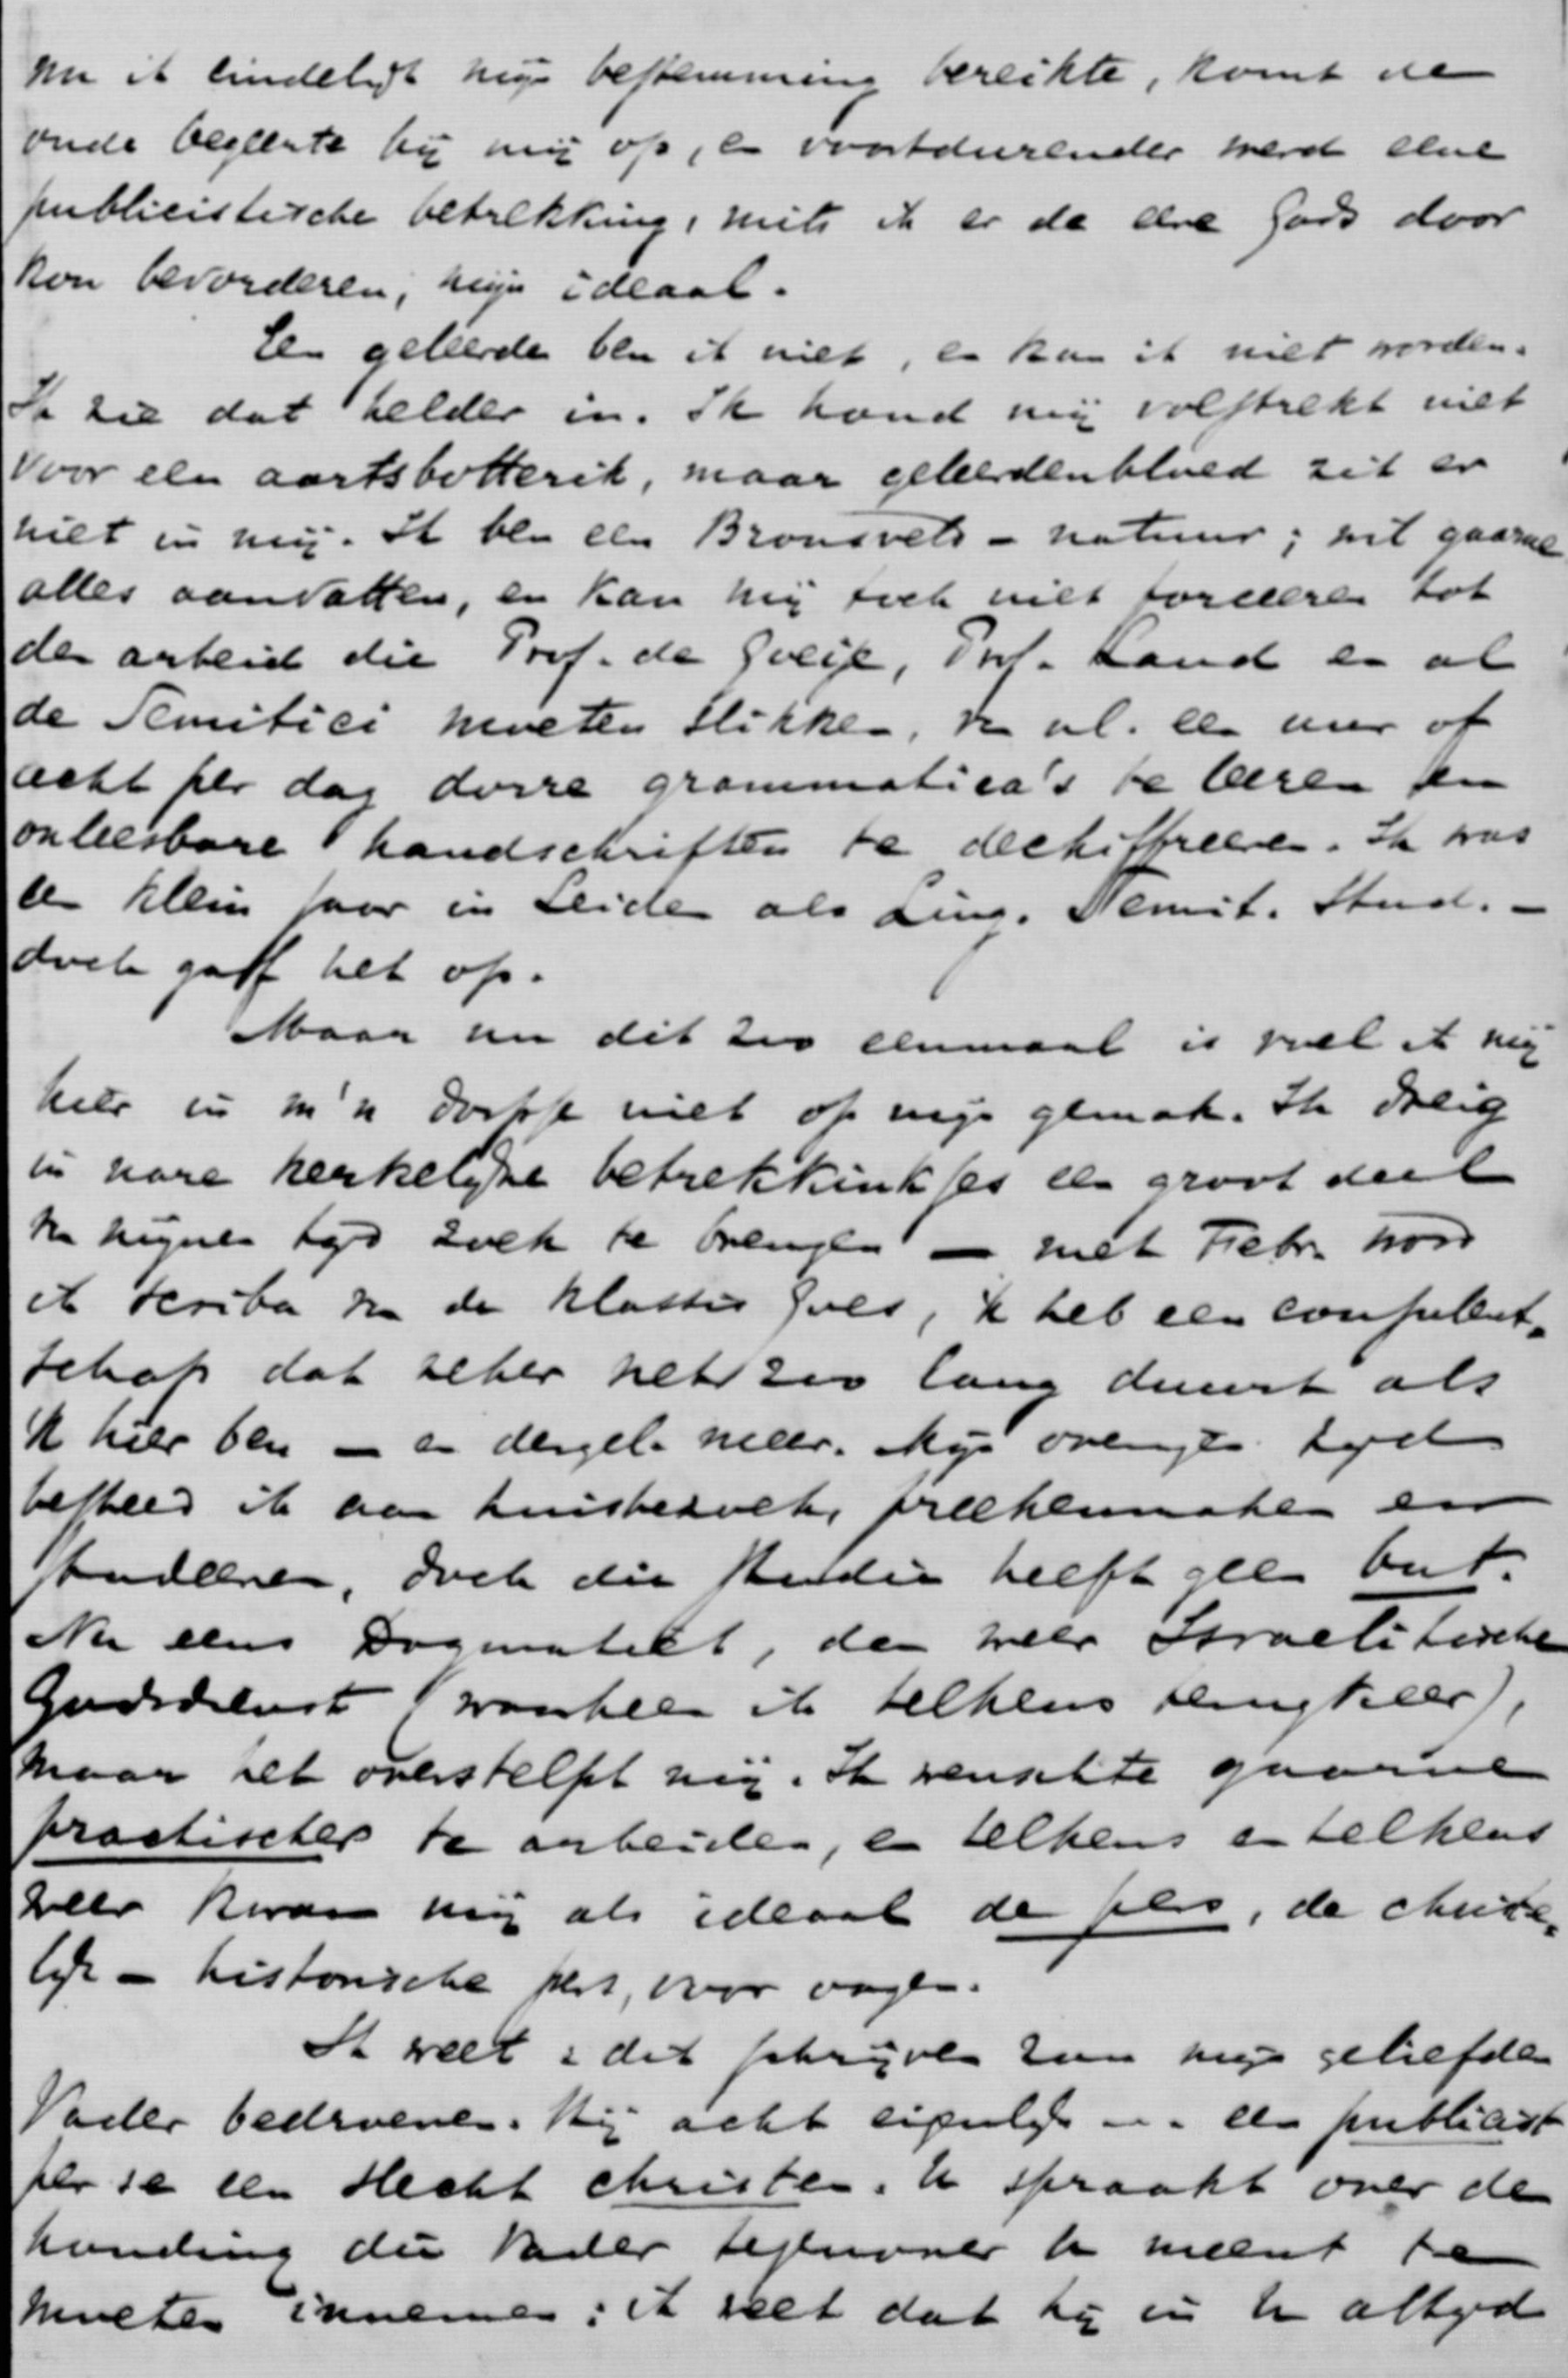 nu ik eindelijk mijn bestemming bereikte, komt de
oude begeerte bij mij op, en voortdurender werd eene
publicistische betrekking, mits ik er de eere Gods door
kon bevorderen, mijn ideaal.
Een geleerde ben ik niet, en kan ik niet worden.
Ik zie dat helder in. Ik houd mij volstrekt niet
voor een aartsbotterik, maar geleerdenbloed zit er
niet in mij. Ik ben een Bronsvelds-natuur; wil gaarne
alles aanvatten, en kan mij toch niet forceeren tot
den arbeid die Prof. de Goeije, Prof. Land en al
de Semitici moeten slikken, nl. een uur of
acht per dag dorre grammatica's te leeren en
onleesbare handschriften te dechiffreeren. Ik was
een klein jaar in Leiden als Ling. Semit. Stud. -
doch gaf het op.
Maar nu dit zoo eenmaal is voel ik mij
hier in m'n dorpje niet op mijn gemak. Ik dreig
in nare kerkelijke betrekkinkjes een groot deel
van mijnen tijd zoek te brengen - met Febr. word
ik scriba van de klassis Goes, ik heb een consulent-
schap dat zeker net zoo lang duurt als
ik hier ben - en dergel. meer. Mijn overigen tijd
besteed ik aan huisbezoek, preekenmaken en
studeeren, doch die studie heeft geen but.
Nu eens Dogmatiek, dan weer Israelitische
Godsdienst (waarheen ik telkens terugkeer),
maar het overstelpt mij. Ik wenschte gaarne
practischer te arbeiden, en telkens en telkens
weer kwam mij als ideaal de pers, de christe-
lijk-historische pers, voor oogen.
Ik weet: dit schrijven zou mijn geliefden
Vader bedroeven. Hij acht eigenlijk een publicist
per se een slecht christen. U spraakt over de
houding die Vader tegenover U meent te
moeten innemen: ik weet dat hij in U altijd